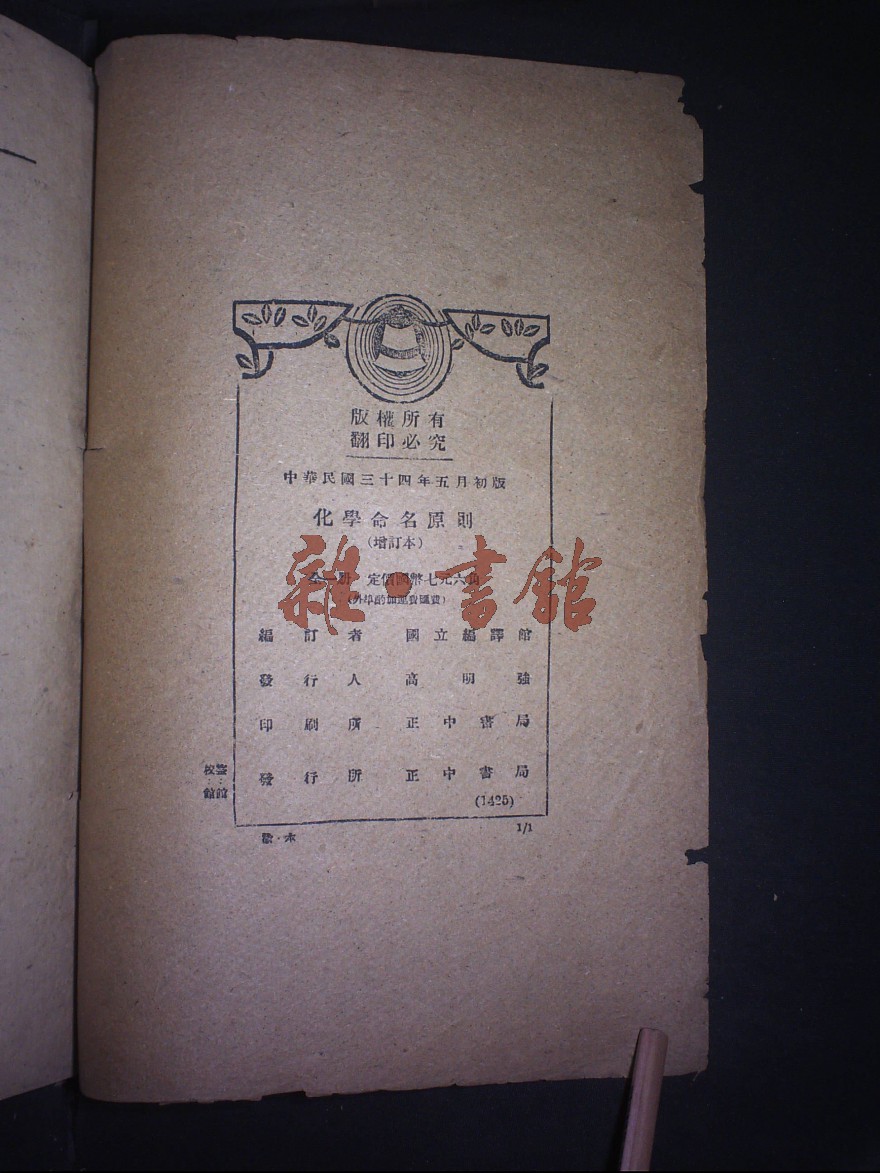 版權所有
翻印必究
中華民國三十四年五月初版
化學命名原則
(增訂本)
全一冊 定價國幣七元六角
(外埠酌加運費匯費)
編訂者 國立編譯館
發行人 高明強
印刷所 正中書局
發行所 正中書局
(1425)
1/1
雜·書館